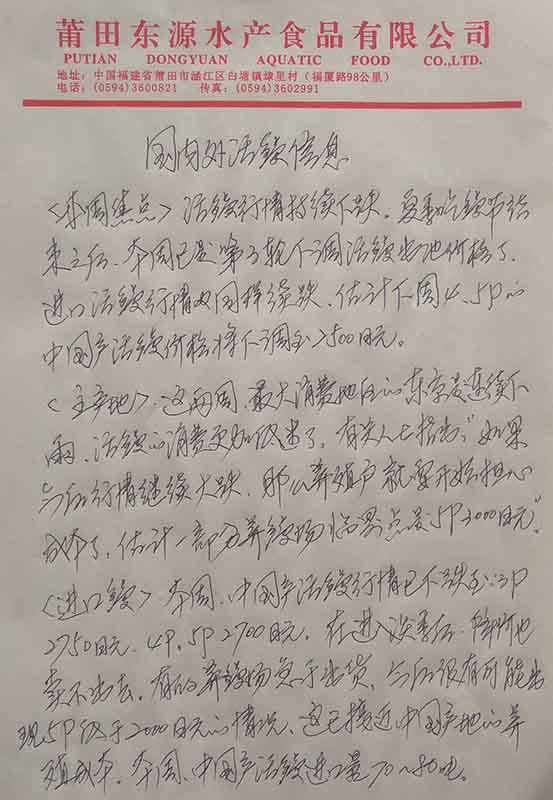 莆田东源水产食品有限公司
PUTIAN DONGYUAN AQUATIC FOOD CO.,LTD.
地址：中国福建省莆田市涵江区白塘镇埭里村（福厦路98公里）
电话：(0594)3600821 传真：(0594)3602991
国内外活鳗信息
<本周焦点> 活鳗行情持续下跌。夏季吃鳗节结
束之后、本周已是第3轮下调活鳗出池价格了。
进口活鳗行情也同样续跌、估计下周4、5P的
中国产活鳗价格将下调至2500日元。
<主产地> 这两周、最大消费地区的东京是连续下
雨、活鳗的消费更加低迷了。有关人士指出："如果
今后行情继续大跌、那么养殖户就要开始担心
成本了、估计一部分养鳗场临界点是5P3000日元"。
<进口鳗> 本周、中国产活鳗行情已下跌至：3P
2750日元、4P、5P2700日元。在进入淡季后、降价也
卖不出去。有的养鳗场急于出货、今后很有可能出
现5P低于2000日元的情况、这已接近中国产地的养
殖成本。本周、中国产活鳗进口量70～80吨。